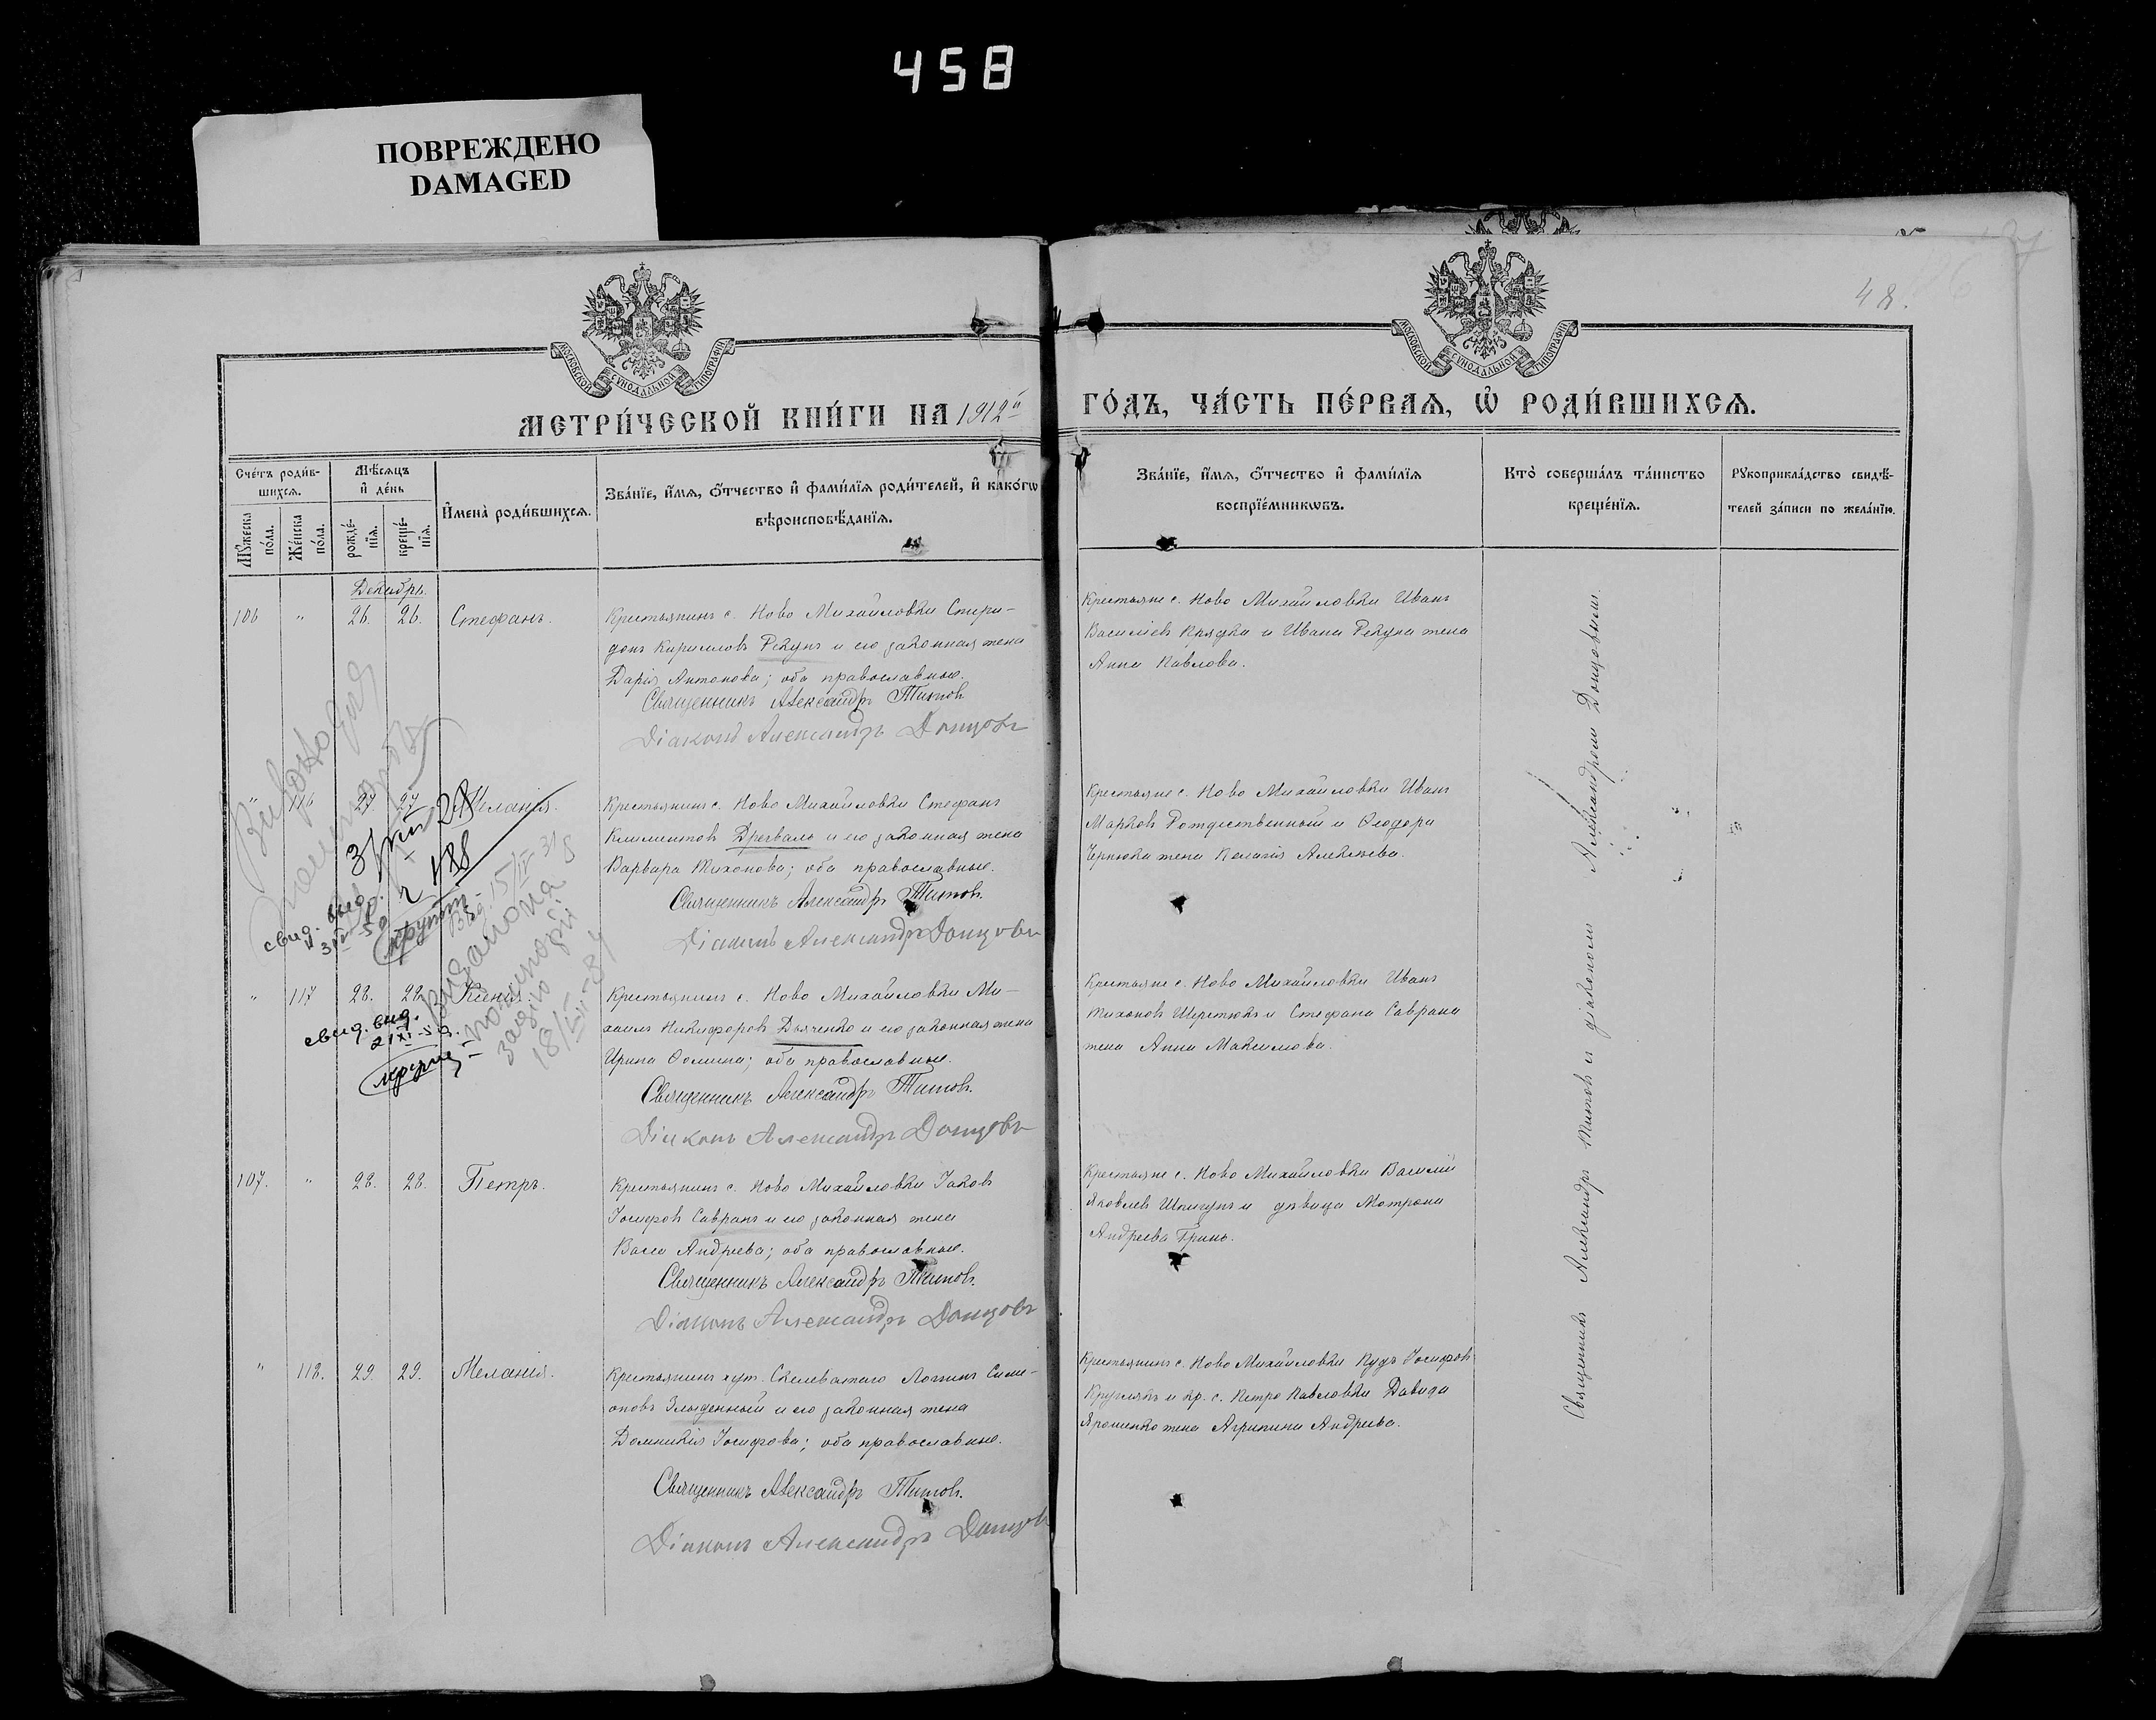 458
ПОВРЕЖДЕНО
DAMAGED
48.
МОСКОВСКОЙ СѴНОДАЛЬНОЙ ТИПОГРАФІИ
МОСКОВСКОЙ СѴНОДАЛЬНОЙ ТИПОГРАФІИ
МЕТРИ́ЧЕСКОЙ КНИ́ГИ НА 1912й
ГО́ДЪ, ЧА́СТЬ ПЕ́РВАѦ, Ѽ РОДИ́ВШИХСѦ.
Сче́тъ роди́в-
шихсѧ.
Мꙋ́жеска по́ла.
Же́нска по́ла.
Мѣ́сѧцъ
и҆ де́нь
рожде́-
нїѧ.
креще́-
нїѧ.
И҆мена̀ роди́вшихсѧ.
Зва́нїе, и҆́мѧ, ѻ҆́тчество и҆ фами́лїѧ роди́телей, и҆ како́гѡ
вѣроисповѣ́данїѧ.
Зва́нїе, и҆́мѧ, ѻ҆́тчество и҆ фами́лїѧ
воспрїе́мникѡвъ.
Кто̀ соверша́лъ та́инство
креще́нїѧ.
Рꙋкоприкла́дство свидѣ́-
телей за́писи по жела́нїю.
Декабрь.
106 " 26. 26. Стефанъ.
Крестьянинъ с. Ново Михайловки Спири-
донъ Кирилловъ Рекунъ и его законная жена
Дарія Антонова; оба православные.
Священникъ Александръ Титовъ
Діаконъ Александръ Донцовъ
Крестьяне с. Ново Михайловки Иванъ
Василіевъ Прядка и Ивана Рекуна жена
Анна Павлова.
" 116 27 27 Меланія.
Крестьянинъ с. Ново Михайловки Стефанъ
Климентовъ Дрегваль и его законная жена
Варвара Тихонова; оба православные.
Священникъ Александръ Титовъ.
Діаконъ Александръ Донцовъ
Крестьяне с. Ново Михайловки Иванъ
Марковъ Рождественный и Ѳеодора
Чернюка жена Пелагія Алексѣева.
свид. выд.
" 117 28. 28. Ксенія.
свид. выд.
21 XI-
Крестьянинъ с. Ново Михайловки Ми-
хаилъ Никифоровъ Дьяченко и его законная жена
Ирина Ѳомина; оба православные.
Священникъ Александръ Титовъ.
Діаконъ Александръ Донцовъ
Крестьяне с. Ново Михайловки Иванъ
Тихоновъ Шеретюкъ и Стефана Саврана
жена Анна Максимова.
107. " 28. 28. Петръ.
Крестьянинъ с. Ново Михайловки Іаковъ
Іосифовъ Савранъ и его законная жена
Васса Андреева; оба православные.
Священникъ Александръ Титовъ.
Діаконъ Александръ Донцовъ
Крестьяне с. Ново Михайловки Василій
Яковлевъ Шпигунъ и дѣвица Матрона
Андреева Гринь.
" 118. 29. 29. Меланія.
Крестьянинъ хут. Скелеватаго Логгинъ Симе-
оновъ Злыденный и его законная жена
Домникія Іосифова; оба православные.
Священникъ Александръ Титовъ.
Діаконъ Александръ Донцовъ
Крестьянинъ с. Ново Михайловки Іосифовъ
Круглякъ и кр. с. Петро Павловки Давида
Ярошенко жена Агрипина Андреева.
Священникъ Александръ Титовъ и діакономъ Александромъ Донцовымъ.